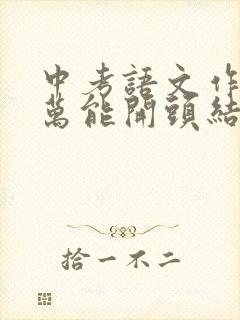 中考語文作
萬能開頭結
拾一不二